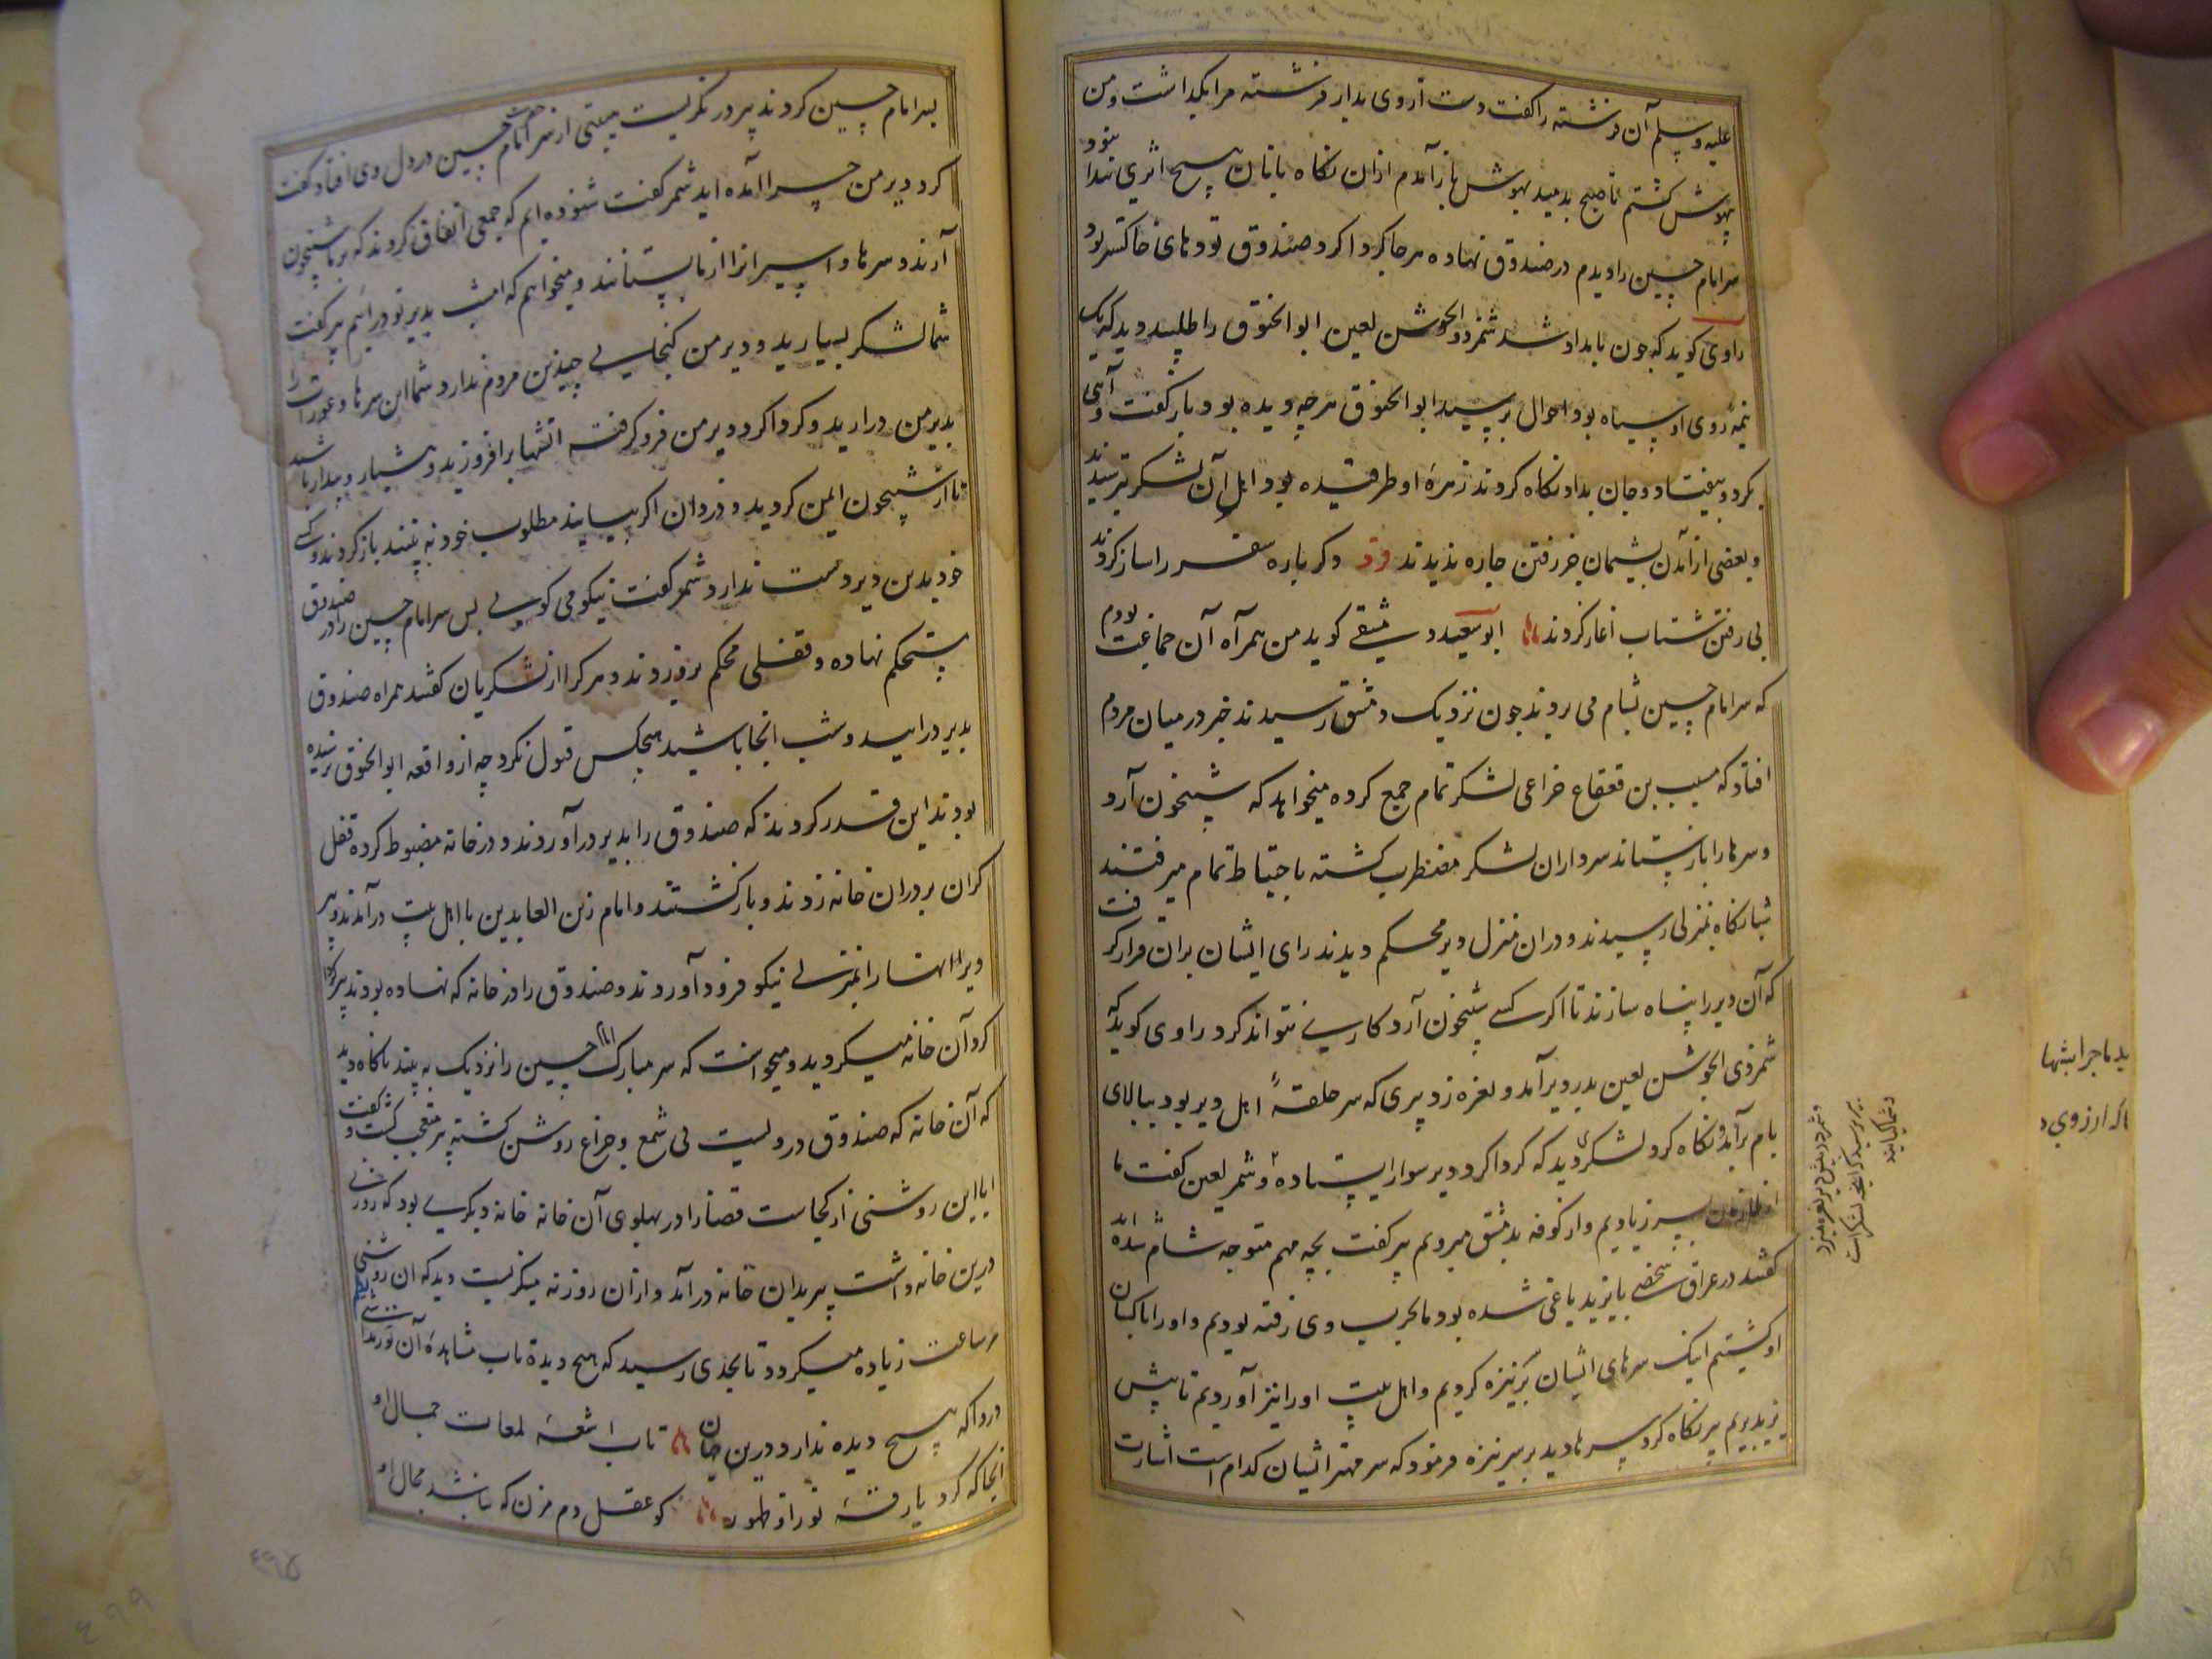 علیه وسلم آن فرشته را کفت دست از وی بدار فرشته مرا بکذاشت و من
بیهوش کشتم تا صبح بدمید بهوش باز آمدم ازان نکاه بانان هیچ اثری نبود و
سر امام حسین را دیدم در صندوق نهاده هر جا کرداکرد صندوق تودهای خاکستر بود
راوی کوید که چون بامداد شد شمر ذوالجوشن لعین ابو الخنوق را طلبید دید که یک
نیمه روی او سیاه بود احوال بپرسید ابو الخنوق هرچه دیده بود باز کفت و آهی
بکرد و بیفتاد و جان بداد نکاه کردند زهره او طرقیده بود اهل آن لشکر بترسیدند
و بعضی از آمدن پشیمان جز رفتن چاره ندیدند فرد دکر باره سفر را ساز کردند
پی رفتن شتاب اغاز کردند ابو سعید دمشقی کوید من همراه آن جماعت بودم
که سر امام حسین بشام می بردند چون نزدیک دمشق رسیدند خبر در میان مردم
افتاد که مسیب بن قعقاع خزاعی لشکر تمام جمع کرده میخواهد که شبیخون آرد
و سرها را باز ستاند سرداران لشکر مضطرب کشته باحتیاط تمام میرفتند
شبانکاه بمنزلی رسیدند و دران منزل دیر محکم دیدند رای ایشان بران قرار کرفت
که آن دیر را پناه سازند تا اکر کسی شبیخون آرد کاری نتواند کرد راوی کوید که
شمر ذی الجوشن لعین بدر دیر آمد و نعره زد پیری که سر حلقهٔ اهل دیر بود ببالای
بام برآمد و نکاه کرد لشکری دید که کرداکرد دیر سوار ایستاده و شمر لعین کفت ما
پسر زیادیم و از کوفه بدمشق میرویم پیر کفت بچه مهم متوجه شام شده اید
کفتند در عراق شخصی با یزید یاغی شده بود ما بحرب وی رفته بودیم و او را با کسان
او کشتیم اینک سرهای ایشان بر نیزه کردیم و اهل بیت او را نیز آوردیم تا پیش
یزید بریم پیر نکاه کرد سرها دید بر سر نیزه فرمود که سر مهتر ایشان کدام است اشارت
بسر امام حسین کردند پیر در نکریست هیبتی از سر امام حسین در دل وی افتاد کفت
کرد دیر من چرا آمده اید شمر کفت شنوده ایم که جمعی اتفاق کردند که بر ما شبیخون
آرند و سرها و اسیرانرا از ما بستانند و میخواهم که امشب بدیر تو درایم پیر کفت
شما لشکر بسیارید و دیر من کنجایی چندین مردم ندارد شما این سرها و عورات را
بدیر من درارید و کرداکرد دیر من فرو کرفته اتشها برافروزید و هشیار و بیدار باشید
تا از شبیخون ایمن کردید و دزدان اکر بیایند مطلوب خود نه بینند باز کردند و کسی
خود بدین دیر دست ندارد شمر کفت نیکو می کویی پس سر امام حسین را در صندوق
مستحکم نهاده و قفلی محکم برو زدند و هر کرا از لشکریان کفتند همراه صندوق
بدیر درایید و شب انجا باشید هیچکس قبول نکرد چه از واقعه ابو الخنوق ترسیده
بودند این قدر کردند که صندوق را بدیر درآوردند و در خانه مضبوط کرده قفل
کران بر در آن خانه زدند و باز کشتند و امام زین العابدین با اهل بیت درآمدند و پیر
دیر انها را بمنزلی نیکو فرود آوردند و صندوق را در خانه که نهاده بودند پیر
کرد آن خانه میکردید و میخواست که سر مبارک امام حسین را نزدیک به بیند ناکاه دید
که آن خانه که صندوق دروست بی شمع و چراغ روشن کشته پیر متعجب کشت و کفت
ایا این روشنی از کجاست قضا را در پهلوی آن خانه خانه دیکری بود که روزنی
درین خانه داشت پیر بدان خانه درآمد و ازان روزنه مینکریست دید که ان روشنی
هر ساعت زیاده میکردد تا بحدی رسید که هیچ دیده تاب مشاهدهٔ آن نورندا
دردا که هیچ دیده ندارد درین جهان تاب اشعهٔ لمعات جمال او
انجا که کرد بارقهٔ نور او ظهور کو عقل دم مزن که نباشد مجال او